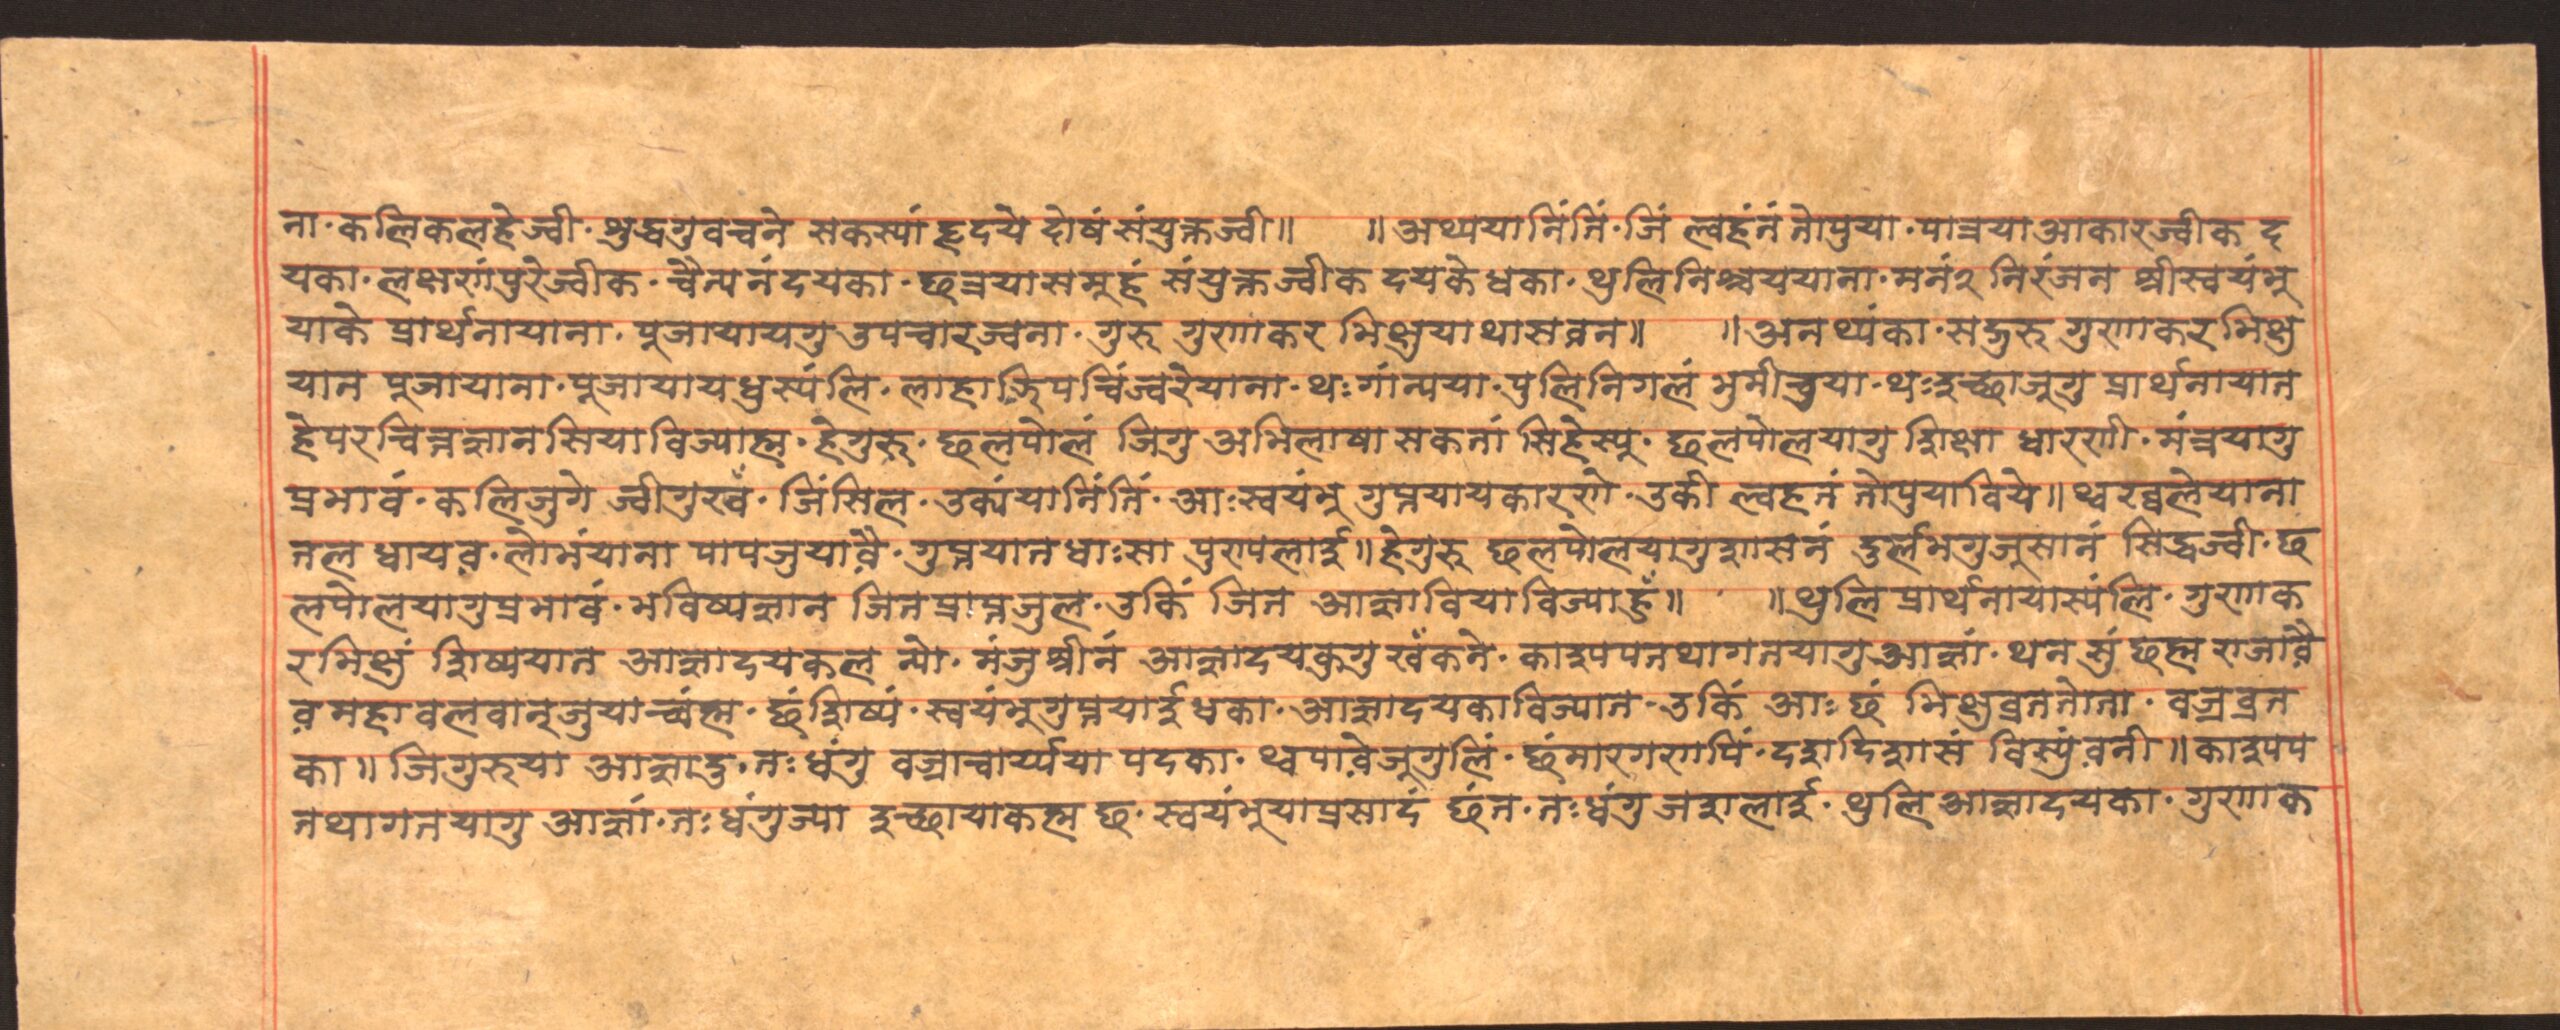 ना·कलिकलहेज्वी·श्रुद्धगुवचने सकस्यां हृदये दोषं संयुक्तज्वी॥ ॥अथ्ययानिंतिं·जिं ल्वहंनं तोपुया·पात्रया आकारज्वीक द
यका·लक्षणंपुरेज्वीक·चैत्यनंदयका·छत्रयासमुहं संयुक्तज्वीक दयकेधका·थुलिनिश्चययाना·मनं२ निरंजन श्रीस्वयंभु
याके प्रार्थनायाना·पूजायायगु उपचारज्वना·गुरु गुणाकर भिक्षुयाथासव़न॥ ॥अनथ्यंका·सद्गुरु गुणाकरभिक्षु
यात पूजायाना·पूजायायधुस्यंलि·लाहाज़िपचिंज्वरेयाना·थःगांत्पया·पुलिनिगलं भुमीचुया·थःइच्छाजुगु प्रार्थनायात
हेपरचित्तज्ञानसिया विज्याह्म·हेगुरु·छलपोलं जिगु अभिलाषा सकतां सिहेस्यु·छलपोलयागु शिक्षा धारणी·मंत्रयागु
प्रभावं·कलिजुगे ज्वीगुखँ·जिंसिल·उक्यंयानिंतिं·आःस्वयंभु गुप्तयायकारणे·उकी ल्वहतं तोपुयाविये॥ थ्वखव़लेयाना
तल धायव़·लोभंयाना पापजुयाव़ै·गुप्तयातधाःसा पुण्यलाई॥हेगुरु छलपोलयागुशासनं दुर्लभगुजूसानं सिद्धज्वी·छ
लपोलयागुप्रभावं·भविष्यज्ञान जितप्राप्तजुल·उकिं जित आज्ञाविया विज्याहुँ॥ ॥थुलिप्रार्थनायास्यंलि·गुणाक
रभिक्षुं शिष्ययात आज्ञादयकल न्यो·मंजुश्रीनं आज्ञादयकुगु खँकने·काश्यपतथागतयागुआज्ञां·थन सुं छह्म राजाव़ै
व़ महावलवान्जुया च्वंह्म·छंशिष्यं·स्वयंभुगुप्तयाईधका·आज्ञादयकाविज्यात·उकिं आः छं भिक्षुव्रततोता·वज्रव्रत
का॥ जिगुरुया आज्ञादु·तःधंगु वज्राचार्य्यया पदका·थ्वपाव़ेजूगुलिं·छंमारगणपिं·दशदिशासं विस्युंव़नी॥काश्यप
तथागतयागु आज्ञां·तःधंगुज्या इच्छायाकह्म छ·स्वयंभुयाप्रसादं छंत·तःधंगु जशलाई·थुलिआज्ञादयका·गुणाक